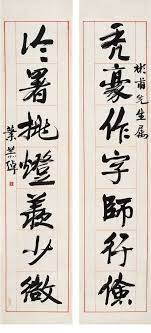 彬甫先生属
禿豪作字師行儉
冷署挑燈羨少微
葉恭綽